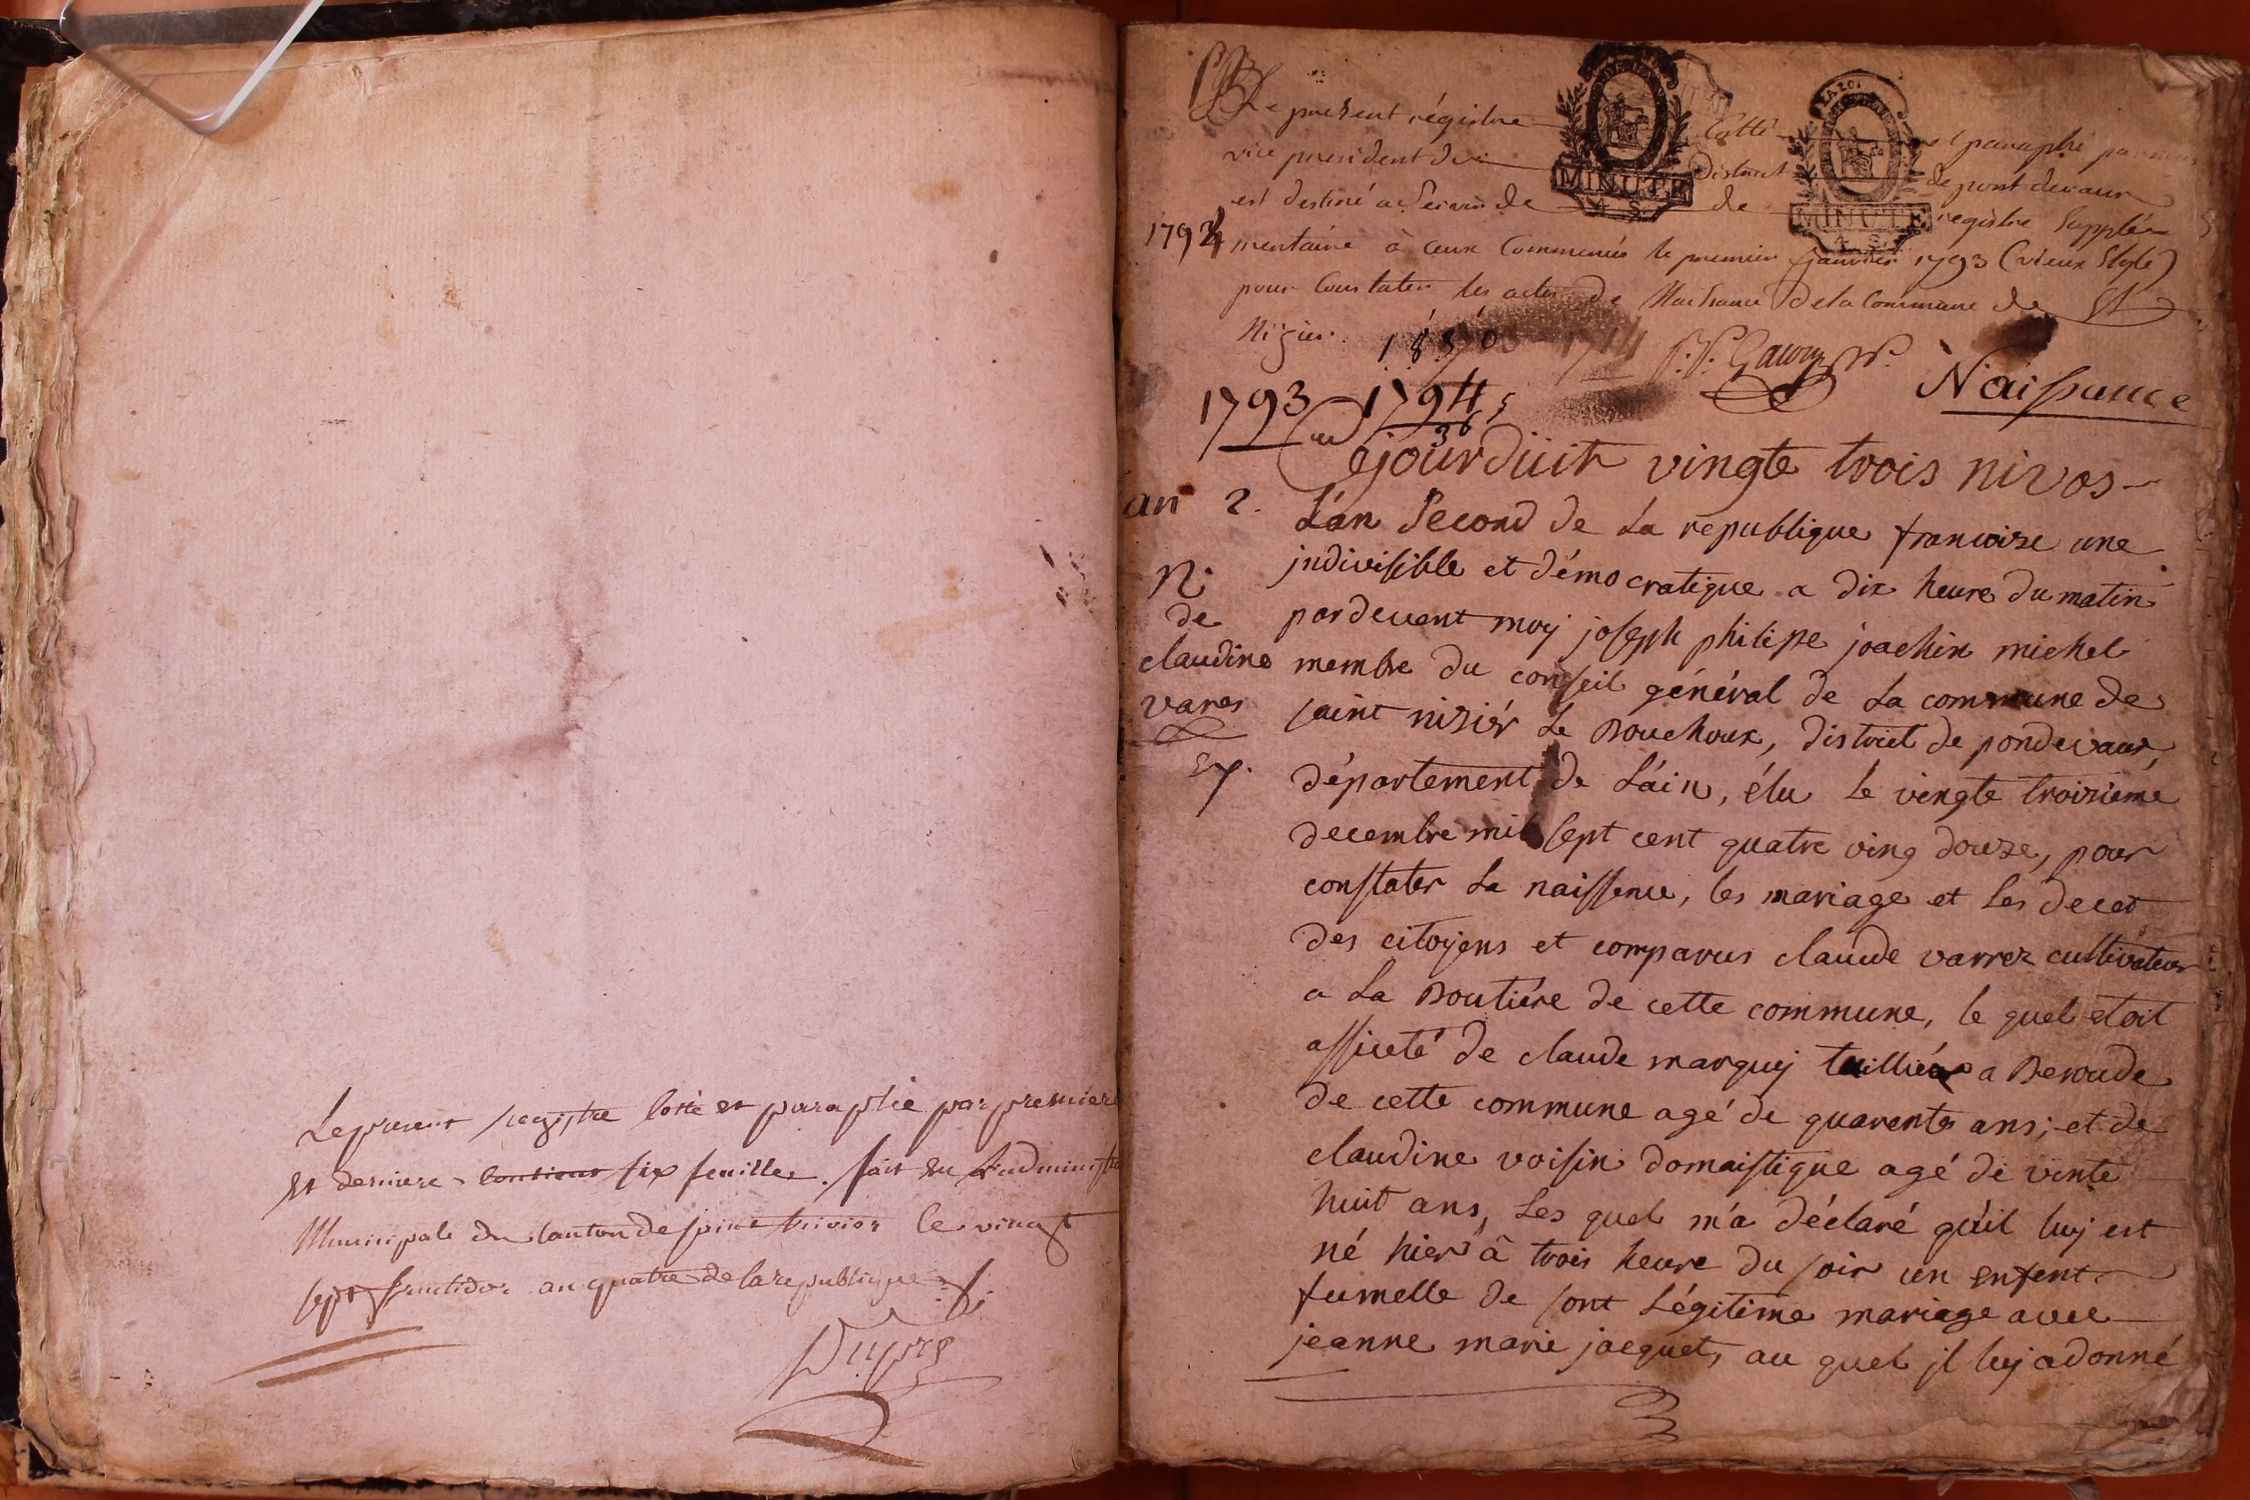 Le présent registre cotté et paraphé par premiere
et derniere contient six feuilles. fait en l'administ
Municipale du canton de saint trivier le vingt
sept fructidor an quatre de la republique
Dupré
Le present régistre Cotté et paraphé par nous
vice president du District de pont devaux
est destiné a servir de de registre Supplé
1794 mentaire à ceux Commencés le premier janvier 1793 (vieux Style)
pour Constater les actes de Naissance de la Commune de St
Nizier.
MINUTE
4 S.
LA LOI
MINUTE
4 S.
1793 1794
Naissance
aujourduit vingte trois nivos
an 2. Lan Second de La republique francoise une
jndivisible et démocratique a dix heure du matin
n. pardevent moy joseph philipe joachin michel
de
claudine membre du conseil général de La commune de
vares saint nisiér Le Bouchoux, district de pondevaux,
département de L'ain, élu Le vingte troisiéme
decembre mil sept cent quatre ving douze, pour
constater La naissence, les mariage et Les decet
des citoyens et comparus claude varrez cultivateur
a La Boutiére de cette commune, le quel etoit
assiceté de claude marguy tailliér a Beroude
de cette commune agé de quarente ans; et de
claudine voisin domaistique agé de vinte
huit ans, Les quel m'a déclaré qu'il luy est
né hier à trois heure du soir un enfent
fumelle de sont Légitime mariage avec
jeanne marie jacquet, au quel jl luy a donné